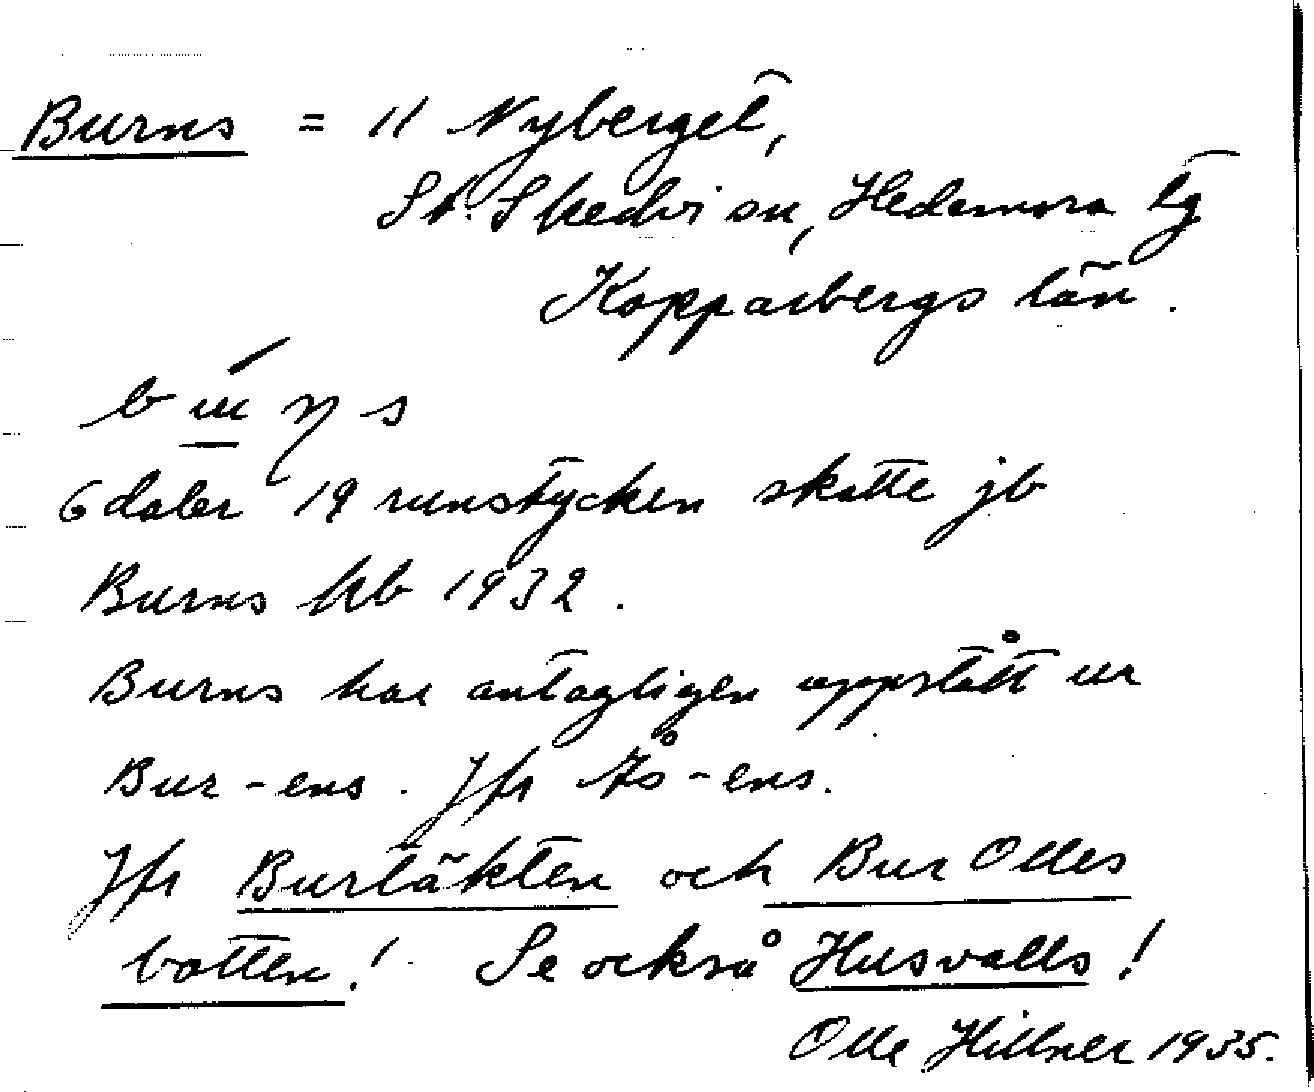 Burns = 11 Nyberget,
St. Skedvi sn, Hedemora tg
Kopparbergs län.
6 daler 19 runstycken skatte jb
Burns hb 1932.
Burns har antagligen uppstått ur
Bur-ens. Jfr Ås-ens.
Jfr Burtäkten och Bur Olles
botten! Se också Husvalls!
Olle Hillner 1935.